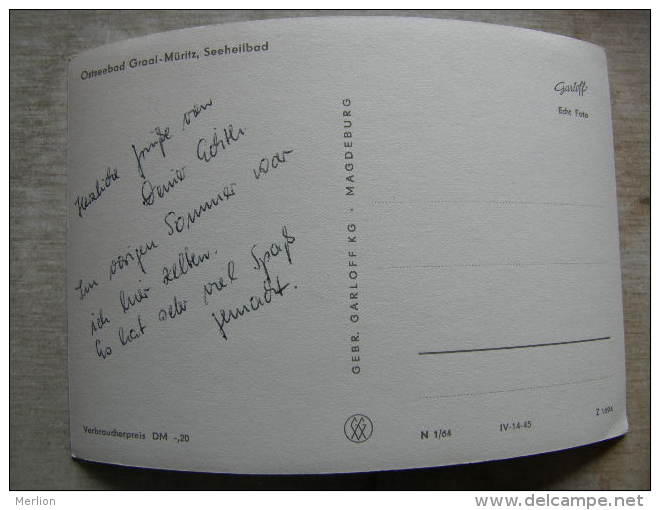 Ostseebad Graal-Müritz, Seeheilbad
Herzliche Grüße von
Deiner
Im vorigen Sommer war
ich hier zelten.
Es hat sehr viel Spaß
gemacht.
Verbraucherpreis DM -,20
GEBR. GARLOFF KG · MAGDEBURG
Garloff
Echt Foto
N 1/64
IV-14-45
Z 1694
Merlion
www.delcampe.net